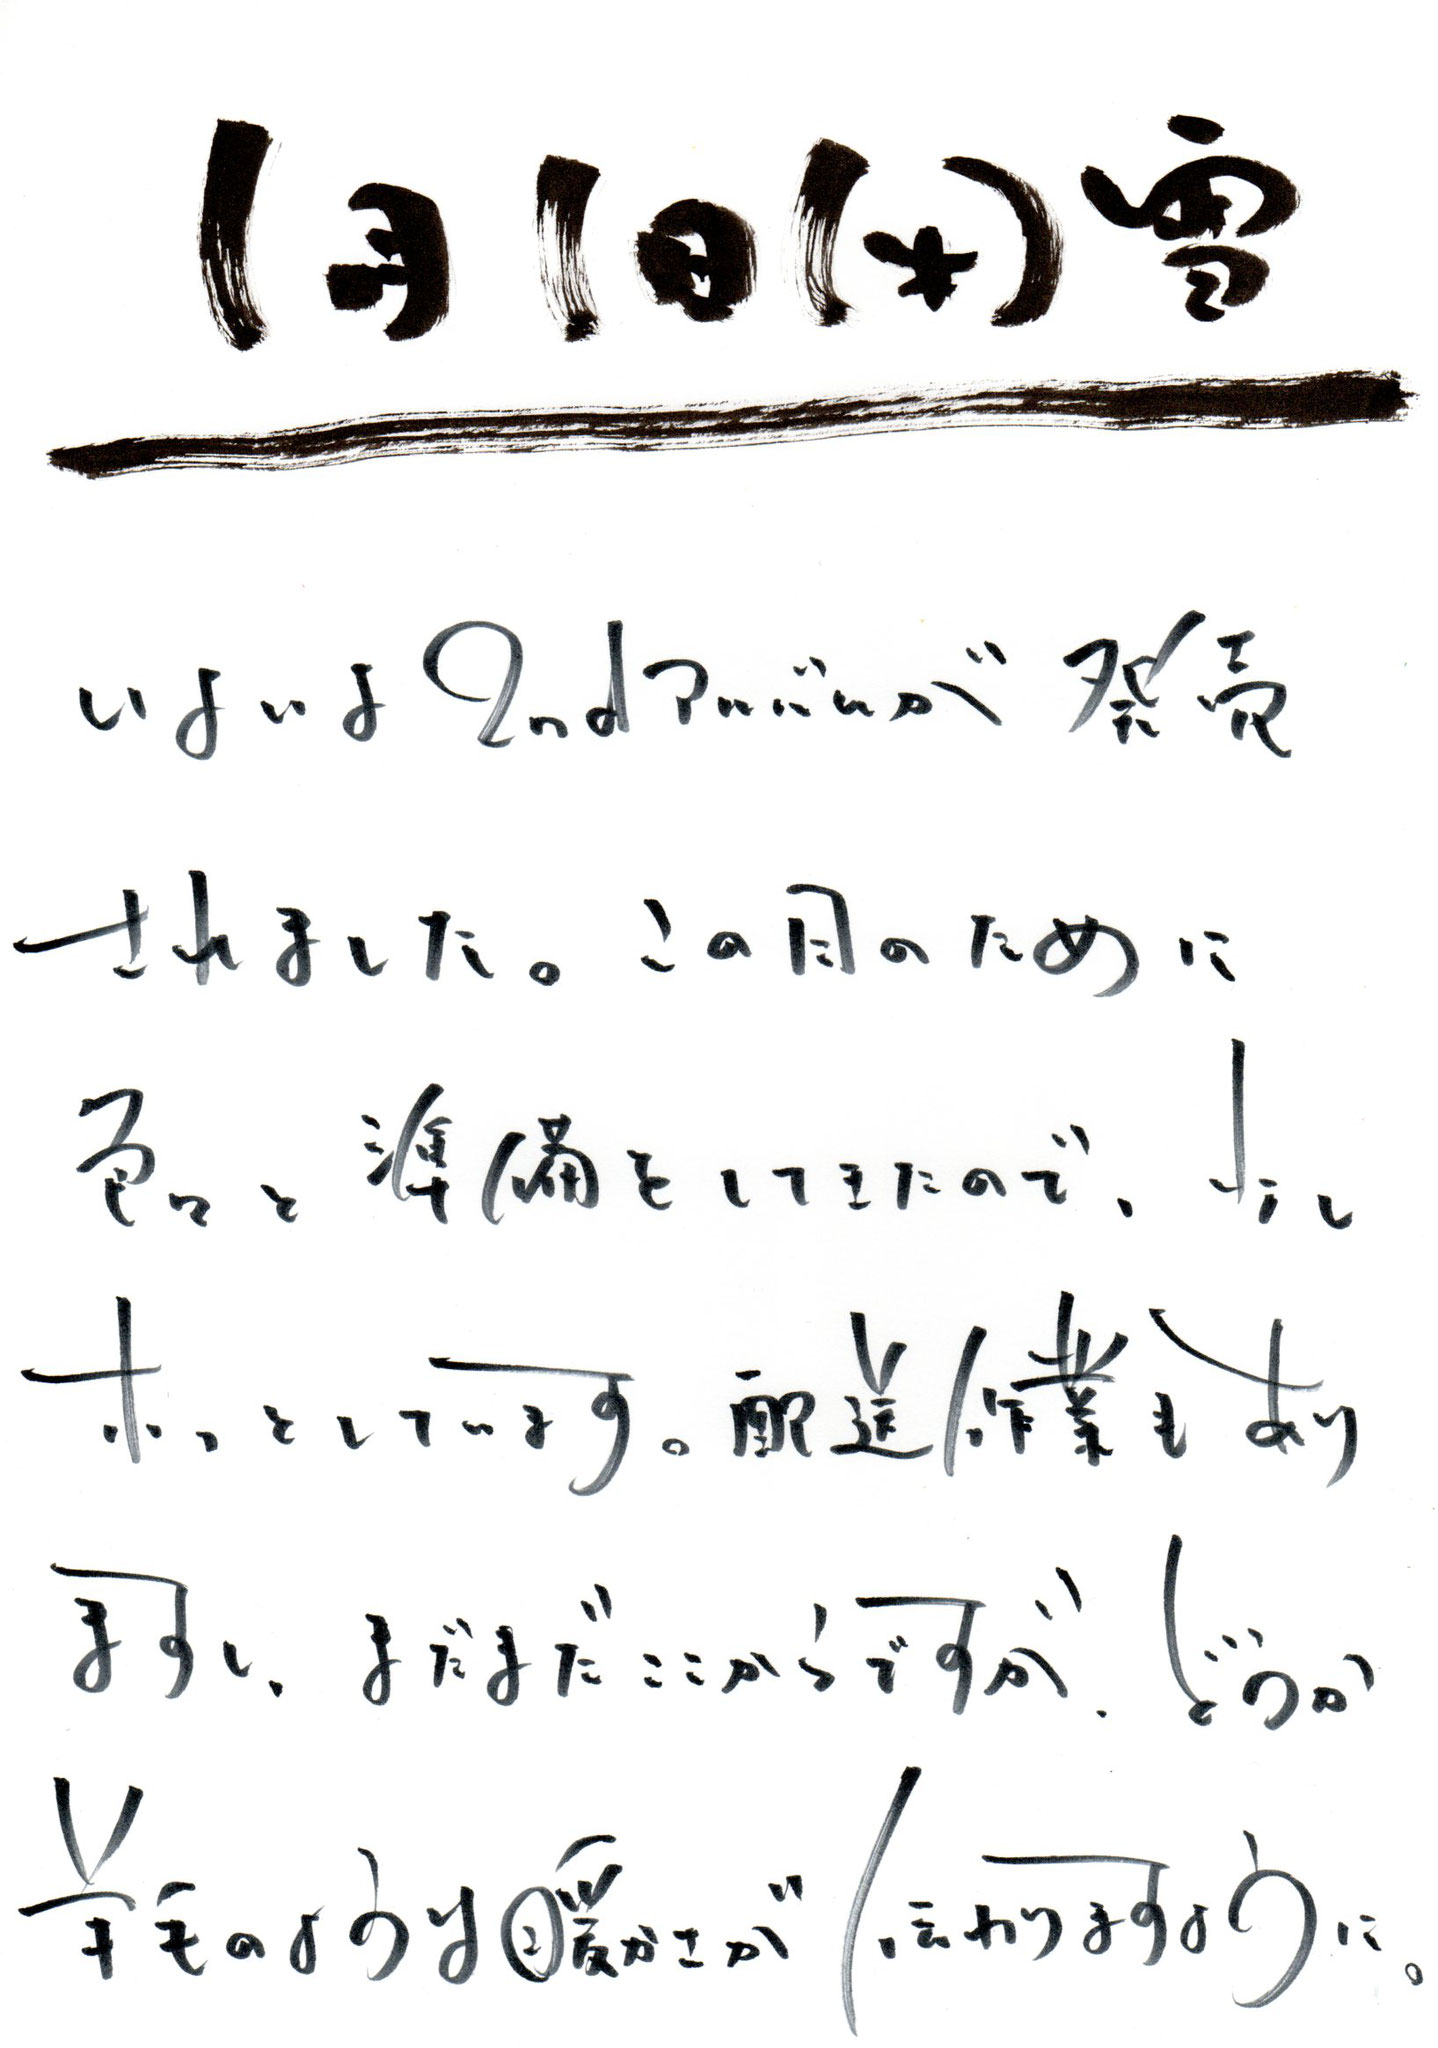 1月1日(水)雪
いよいよ2ndアルバムが発売
されました。この日のために
色々と準備をしてきたので、少し
ホッとしています。配送作業もあり
ますし、まだまだここからですが、どうか
羊毛のような暖かさが伝わりますように。